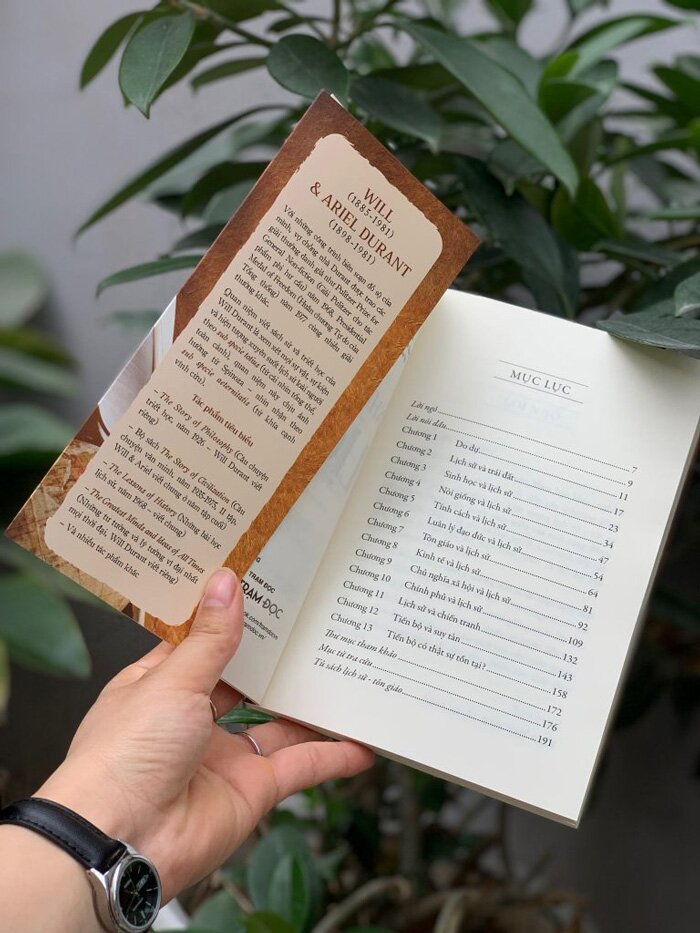 WILL
(1885-1981)
& ARIEL DURANT
(1898-1981)
Với những công trình biên soạn đồ sộ của
mình, vợ chồng nhà Durant được trao các
giải thưởng danh giá như Pulitzer Prize for
General Non-fiction (Giải Pulitzer cho tác
phẩm phi hư cấu) năm 1968, Presidential
Medal of Freedom (Huân chương Tự do của
Tổng thống) năm 1977 cùng nhiều giải
thưởng khác.
Quan niệm viết sách sử và triết học của
Will Durant là xem xét mọi sự vật, sự kiện
và hiện tượng xuyên suốt lịch sử loài người
theo sub specie totius (từ cái nhìn tổng thể,
toàn cảnh), quan niệm này chịu ảnh
hưởng từ Spinoza - nhìn nhận theo
sub specie aeternitatis (từ khía cạnh
vĩnh cửu).
Tác phẩm tiêu biểu
– The Story of Philosophy (Câu chuyện
triết học, năm 1926 – Will Durant viết
riêng)
– Bộ sách The Story of Civilization (Câu
chuyện văn minh, năm 1935-1975, 11 tập,
Will & Ariel viết chung ở năm tập cuối)
– The Lessons of History (Những bài học
lịch sử, năm 1968 – viết chung)
– The Greatest Minds and Ideas of All Times
(Những tư tưởng và lý tưởng vĩ đại nhất
mọi thời đại, Will Durant viết riêng)
– Và nhiều tác phẩm khác
TRẠM ĐỌC
TRẠM ĐỌC
MỤC LỤC
Lời ngỏ 7
Lời nói đầu 9
Chương 1 Do dự 11
Chương 2 Lịch sử và trái đất 17
Chương 3 Sinh học và lịch sử 23
Chương 4 Nòi giống và lịch sử 34
Chương 5 Tính cách và lịch sử 47
Chương 6 Luân lý đạo đức và lịch sử 54
Chương 7 Tôn giáo và lịch sử 64
Chương 8 Kinh tế và lịch sử 81
Chương 9 Chủ nghĩa xã hội và lịch sử 92
Chương 10 Chính phủ và lịch sử 109
Chương 11 Lịch sử và chiến tranh 132
Chương 12 Tiến bộ và suy tàn 143
Chương 13 Tiến bộ có thật sự tồn tại? 158
Thư mục tham khảo 172
Mục từ tra cứu 176
Tủ sách lịch sử - tôn giáo 191